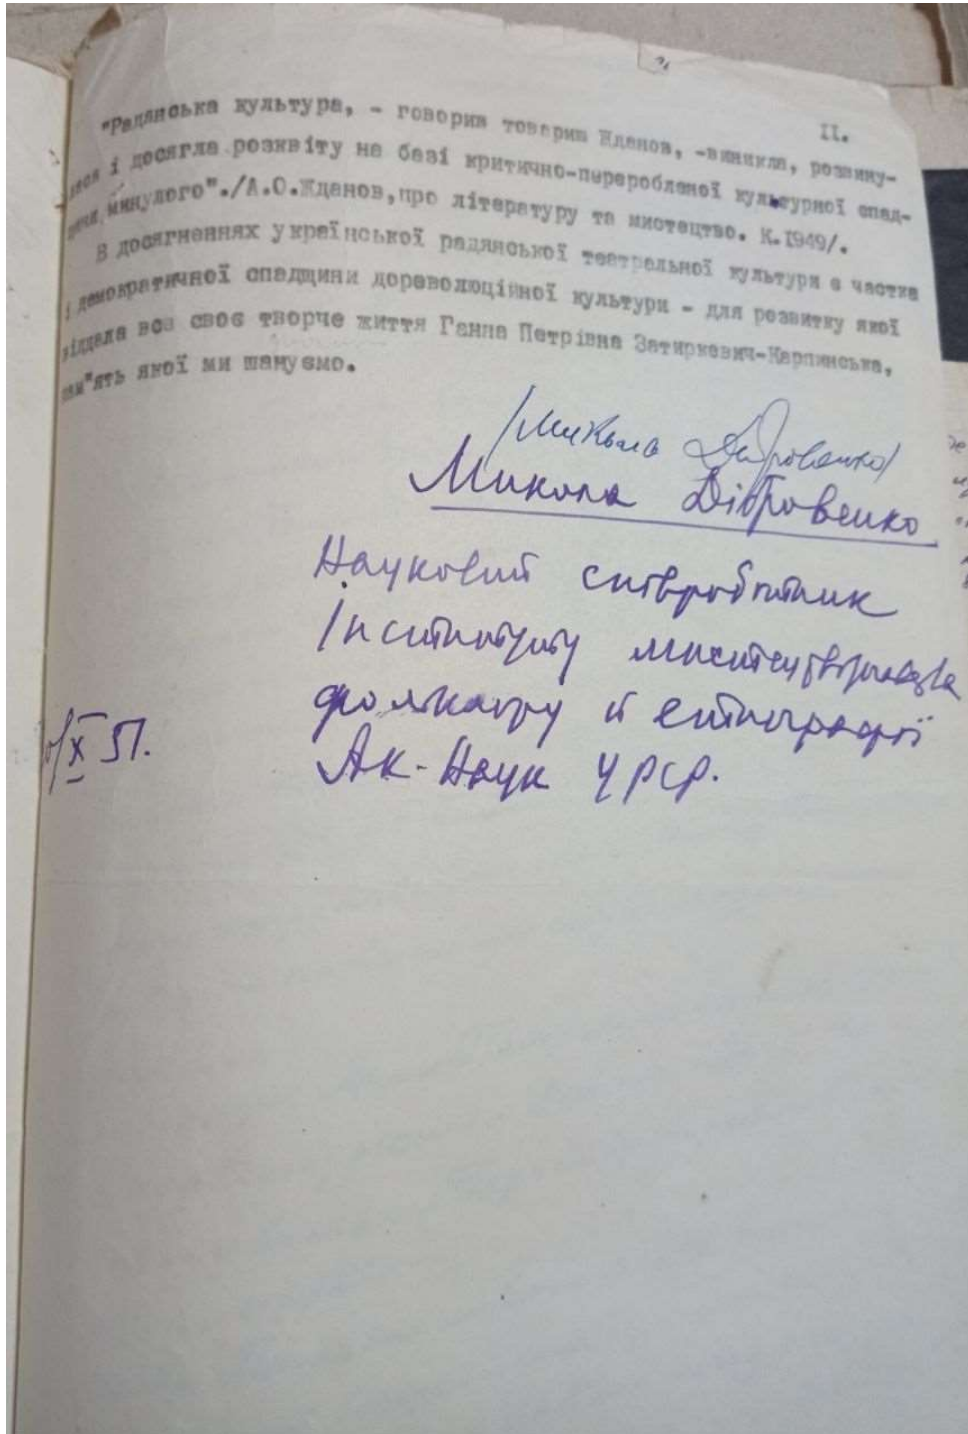 II.
"Радянська культура, - говорив товариш Жданов, -виникла, розвину-
лася і досягла розквіту на базі критично-переробленої культурної спад-
щини минулого"./А.О.Жданов,про літературу та мистецтво. К.1949/.
В досягненнях української радянської театральної культури є частка
і демократичної спадщини дореволюційної культури - для розвитку якої
віддала все своє творче життя Ганна Петрівна Затиркевич-Карпинська,
пам"ять якої ми шануємо.
/Микола Дібровенко/
Микола Дібровенко
Науковий співробітник
Інституту мистецтвознавства
фольклору й етнографії
Ак-Наук УРСР.
X 51.